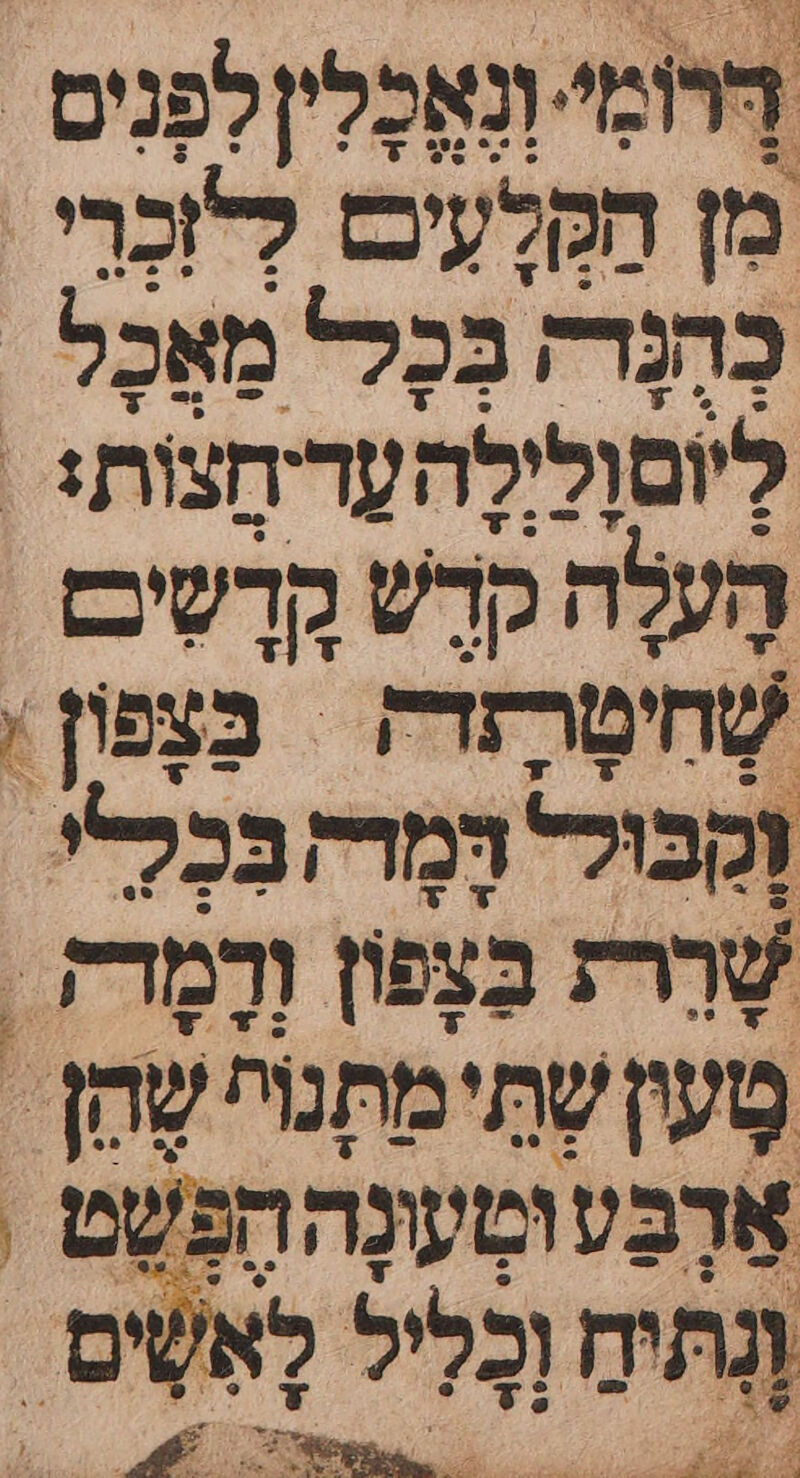 דְּרוֹמִי· וְנֶאֱכָלִין לִפְנִים
מִן הַקְּלָעִים לְזִכְרֵי
כְהֻנָּה בְּכָל מַאֲכָל
לְיוֹם וָלַיְלָה עַד־חֲצוֹת׃
הָעֹלָה קֹדֶשׁ קָדָשִׁים
שְׁחִיטָתָהּ בַּצָּפוֹן
וְקִבּוּל דָּמָהּ בִּכְלֵי
שָׁרֵת בַּצָּפוֹן וְדָמָהּ
טָעוּן שְׁתֵּי מַתָּנוֹת שֶׁהֵן
אַרְבַּע וּטְעוּנָה הֶפְשֵׁט
וְנִתּוּחַ וְכָלִיל לָאִשִּׁים